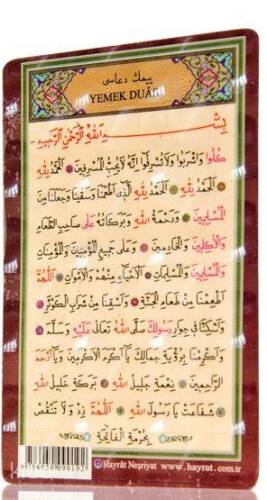 ييمك دعاسى
YEMEK DUÂSI
بِسْمِ اللهِ الرَّحْمٰنِ الرَّحِيمِ
كُلُوا وَاشْرَبُوا وَلَا تُسْرِفُوا اِنَّهُ لَا يُحِبُّ الْمُسْرِفِينَ ❁ اَلْحَمْدُ لِلّٰهِ
اَلْحَمْدُ لِلّٰهِ ❁ اَلْحَمْدُ لِلّٰهِ الَّذِى اَطْعَمَنَا وَسَقٰينَا وَجَعَلَنَا مِنَ
الْمُسْلِمِينَ ❁ وَنِعْمَةُ اللهِ وَبَرَكَاتُهُ عَلٰى صَاحِبِ الطَّعَامِ
وَالْاٰكِلِينَ وَالْخَادِمِينَ ❁ وَعَلٰى جَمِيعِ الْمُؤْمِنِينَ وَالْمُؤْمِنَاتِ
وَالْمُسْلِمِينَ وَالْمُسْلِمَاتِ ❁ اَلْاَحْيَاءِ مِنْهُمْ وَالْاَمْوَاتِ ❁ اَللّٰهُمَّ
اَطْعِمْنَا مِنْ طَعَامِ الْجَنَّةِ ❁ وَاسْقِنَا مِنْ شَرَابِ الْكَوْثَرِ
وَاَسْكِنَّا فِى جِوَارِ رَسُولِكَ صَلَّى اللهُ تَعَالٰى عَلَيْهِ وَسَلَّمَ ❁
وَاَكْرِمْنَا بِرُؤْيَةِ جَمَالِكَ يَا اَكْرَمَ الْاَكْرَمِينَ وَيَا اَرْحَمَ
الرَّاحِمِينَ ❁ نِعْمَةِ جَلِيلُ اللهِ ❁ بَرَكَةِ خَلِيلُ اللهِ
شَفَاعَتْ يَا رَسُولَ اللهِ ❁ اَللّٰهُمَّ زِدْ وَلَا تَنْقُصْ
بِحُرْمَةِ الْفَاتِحَةِ
Hayrât Neşriyat www.hayrat.com.tr